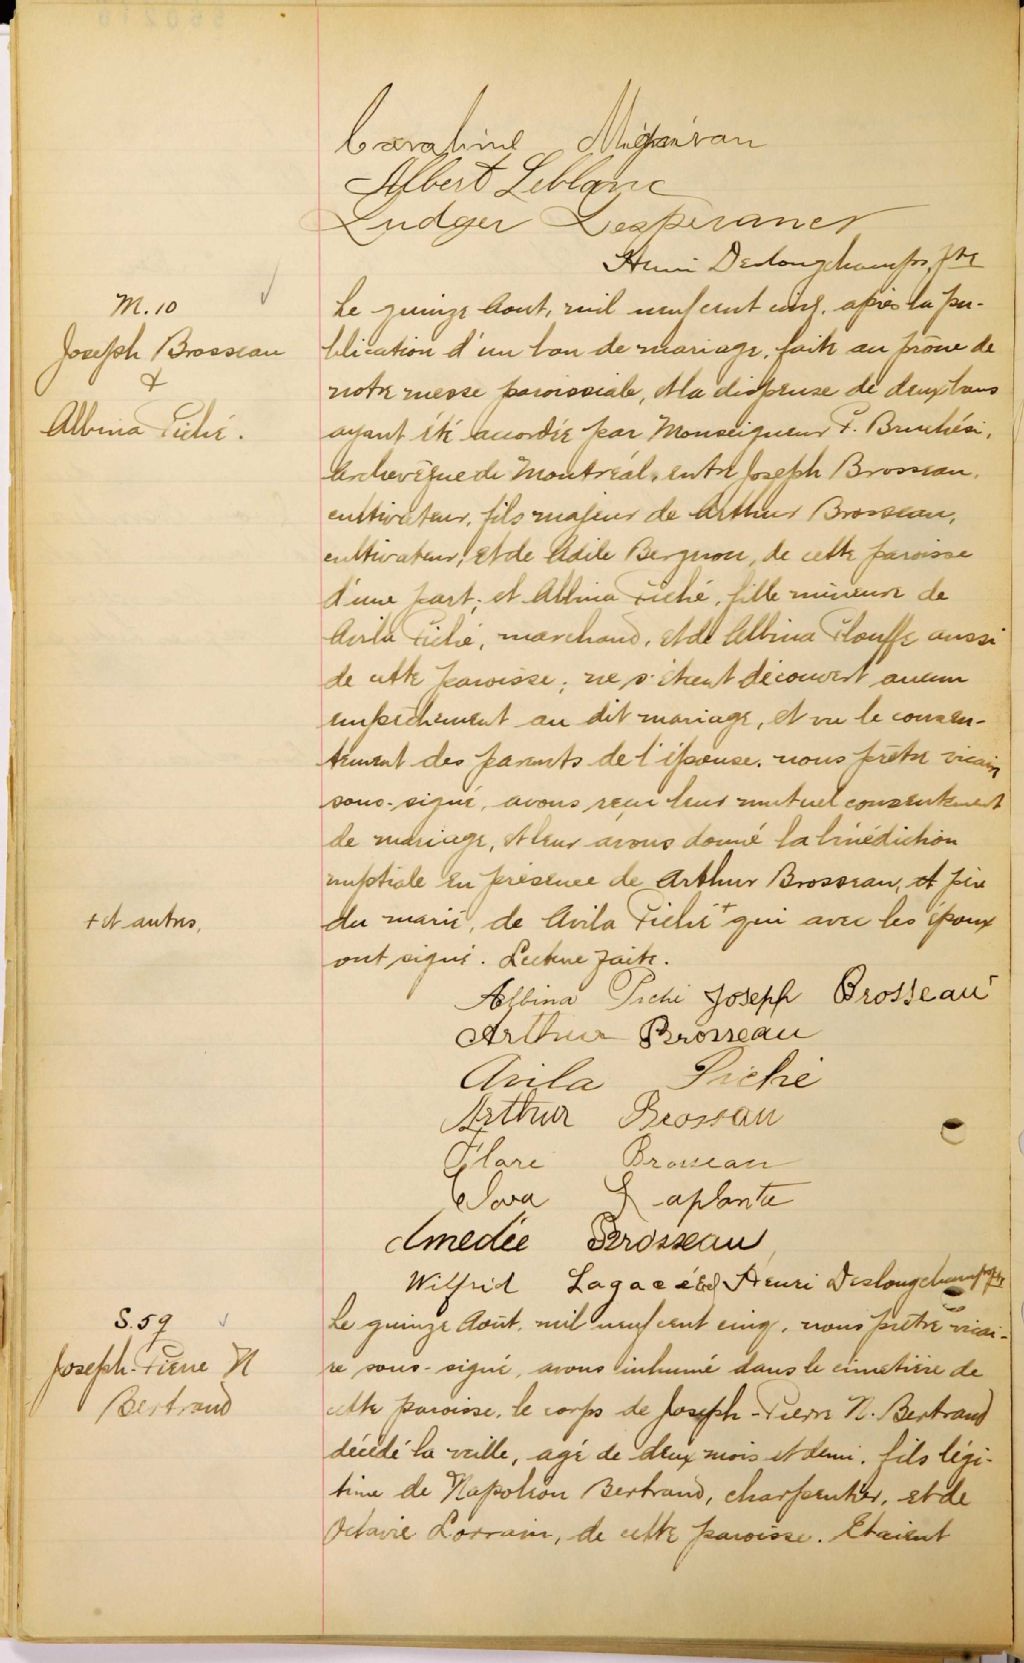 Albert Leblanc
Ludger Lesperance
Henri Deslongchamps, ptre
M. 10
Joseph Brosseau
&
Albina Piché.
Le quinze Aout, mil neuf cent cinq, après la pu-
blication d'un ban de mariage, faite au prône de
notre messe paroissiale, et la dispense de deux bans
ayant été accordée par Monseigneur P. Bruchési,
Archevêque de Montréal, entre Joseph Brosseau,
cultivateur, fils majeur de Arthur Brosseau,
cultivateur, et de Adile Bergnon, de cette paroisse
d'une part; et Albina Piché, fille mineure de
Avila Piché, marchand, et de Albina Plouffe aussi
de cette paroisse; ne s'étant découvert aucun
empêchement au dit mariage, et vu le consen-
tement des parents de l'épouse, nous prêtre vicaire
sous-signé, avons reçu leur mutuel consentement
de mariage, et leur avons donné la bénédiction
nuptiale en présence de Arthur Brosseau, père
du marié, de Avila Piché + qui avec les époux
+ et autres,
ont signé. Lecture faite.
Albina Piché Joseph Brosseau
Arthur Brosseau
Avila Piché
Arthur Brosseau
Flore Brosseau
Laplante
Amedée Brosseau
Wilfrid Lagacé Henri Deslongchamps ptre
S. 59
Joseph-Pierre N
Bertrand
Le quinze Août, mil neuf cent cinq, nous prêtre vicai-
re sous-signé, avons inhumé dans le cimetière de
cette paroisse, le corps de Joseph-Pierre N. Bertrand
décédé la veille, agé de deux mois et demi, fils légi-
time de Napoléon Bertrand, charpentier, et de
Octavie Lorrain, de cette paroisse. Etaient